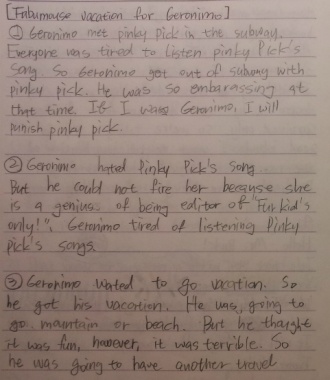 [Fabumouse vacation for Geronimo]
① Geronimo met pinky pick in the subway.
Everyone was tired to listen pinky Pick's
song. So Geronimo get out of subway with
pinky pick. He was so embarassing at
that time. If I was Geronimo, I will
punish pinky pick.
② Geronimo hated Pinky Pick's song
But he could not fire her because she
is a genius of being editor of "Fur kid's
only!". Geronimo tired of listening Pinky
Pick's songs.
③ Geronimo wated to go vacation. So
he get his vacation. He was going to
go mountain or beach. But he thought
it was fun, however, it was terrible. So
he was going to have another travel